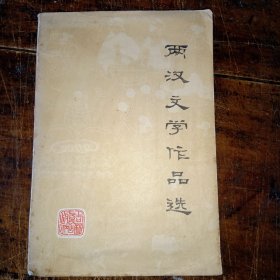 两汉文学作品选